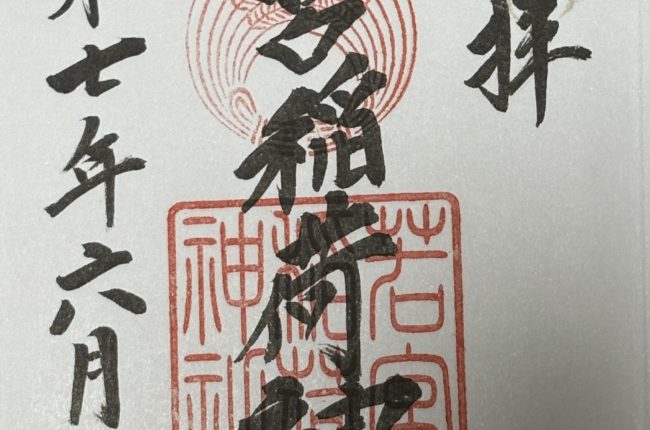 拝
宮稲荷神
若宮
稲荷
神社
七年六月